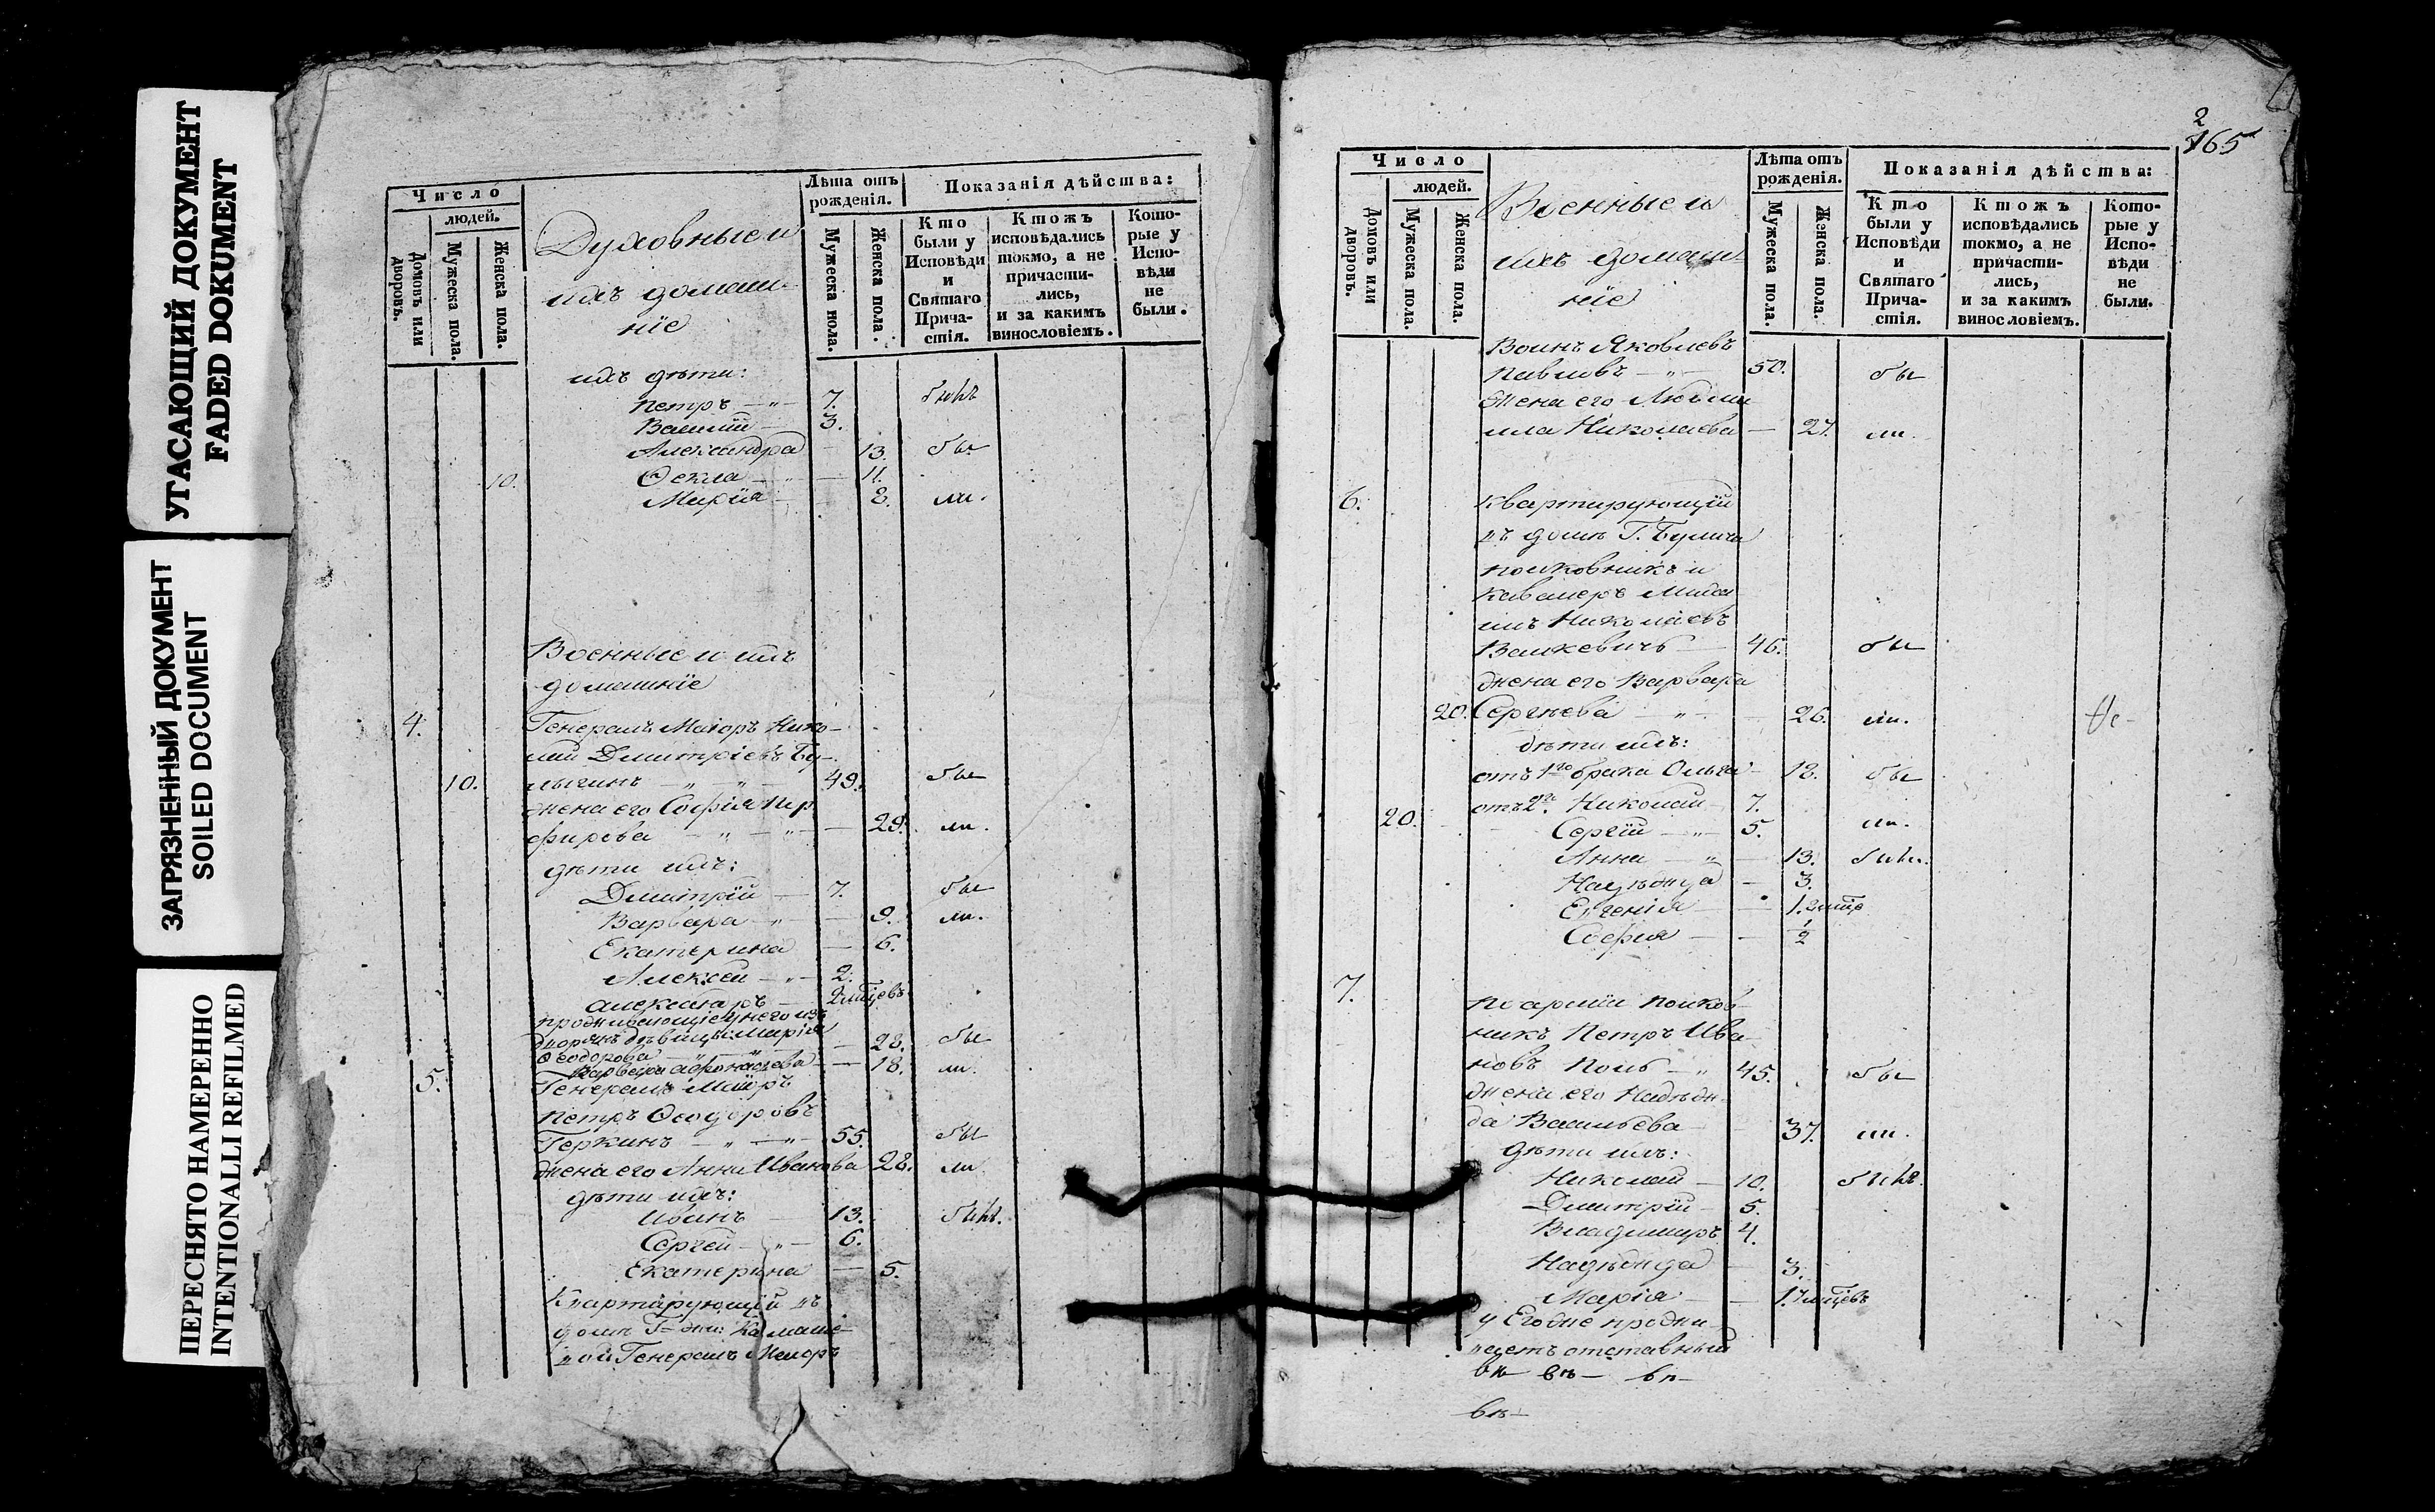 УГАСАЮЩИЙ ДОКУМЕНТ
FADED DOKUMENT
ЗАГРЯЗНЕННЫЙ ДОКУМЕНТ
SOILED DOCUMENT
ПЕРЕСНЯТО НАМЕРЕННО
INTENTIONALLI REFILMED
Число
людей.
Домовъ или дворовъ.
Мужеска пола.
Женска пола.
Духовные и
ихъ домаш-
ніе
Лѣта отъ
рожденія.
Мужеска пола.
Женска пола.
Показанія дѣйства:
Кто
были у
Исповѣди
и
Святаго
Прича-
стія.
Ктожъ
исповѣдались
токмо, а не
причасти-
лись,
и за какимъ
винословіемъ.
Кото-
рые у
Испо-
вѣди
не
были.
ихъ дѣти:
Петръ 7.
Василій 3.
Александра 13. бы
10. Ѳекла 11.
Марія 8. ли.
Военные и ихъ
домашніе
4. Генералъ Маіоръ Нико-
лай Дмитріевъ Бу-
10. лыгинъ 49. бы
жена его Софія Пор
фирова 29. ли.
дѣти ихъ:
Дмитрій 7. бы
Варвара 9. ли.
Екатерина 6.
Алексей 2.
Александръ
проживающіе у него изъ
дворянъ дѣвицы: Марія
Ѳеодорова 28. бы
Варвара 18. ли.
5. Генералъ Маіоръ
Петръ Ѳеодоровъ
Геркинъ 55. бы
жена его Анна Иванова 28. ли.
дѣти ихъ:
Иванъ 13.
Сергей 6.
Екатерина 5.
Квартирующій въ
домѣ Г-жи
Генералъ Маіоръ
2
165
Число
людей.
Домовъ или дворовъ.
Мужеска пола.
Женска пола.
Военные и
ихъ домаш-
ніе
Лѣта отъ
рожденія.
Мужеска пола.
Женска пола.
Показанія дѣйства:
Кто
были у
Исповѣди
и
Святаго
Прича-
стія.
Ктожъ
исповѣдались
токмо, а не
причасти-
лись,
и за какимъ
винословіемъ.
Кото-
рые у
Испо-
вѣди
не
были.
Воинъ Яковлевъ
Павловъ 50. бы
жена его Людми
ила Николаева 27. ли.
6. Квартирующій
въ домѣ Г. Булича
полковникъ и
Кавалеръ Михаи
илъ Николаевъ
46. бы
жена его Варвара
20. Сергѣева 26. ли.
дѣти ихъ:
отъ 1го брака Ольга 18. бы
отъ 2го. Николай 7.
20. Сергій 5. ли.
Анна 13.
Надѣжда 3.
Евгенія 1.
Софія 1/2
7. По арміи полков
никъ Петръ Ива
новъ Поль 45. бы
жена его Надѣж
да Васильева 37. ли.
дѣти ихъ:
Николай 10.
Дмитрій 5.
Владимиръ 4.
Надѣжда 3.
Марія 1.
у Его же прожи
ваетъ отставный